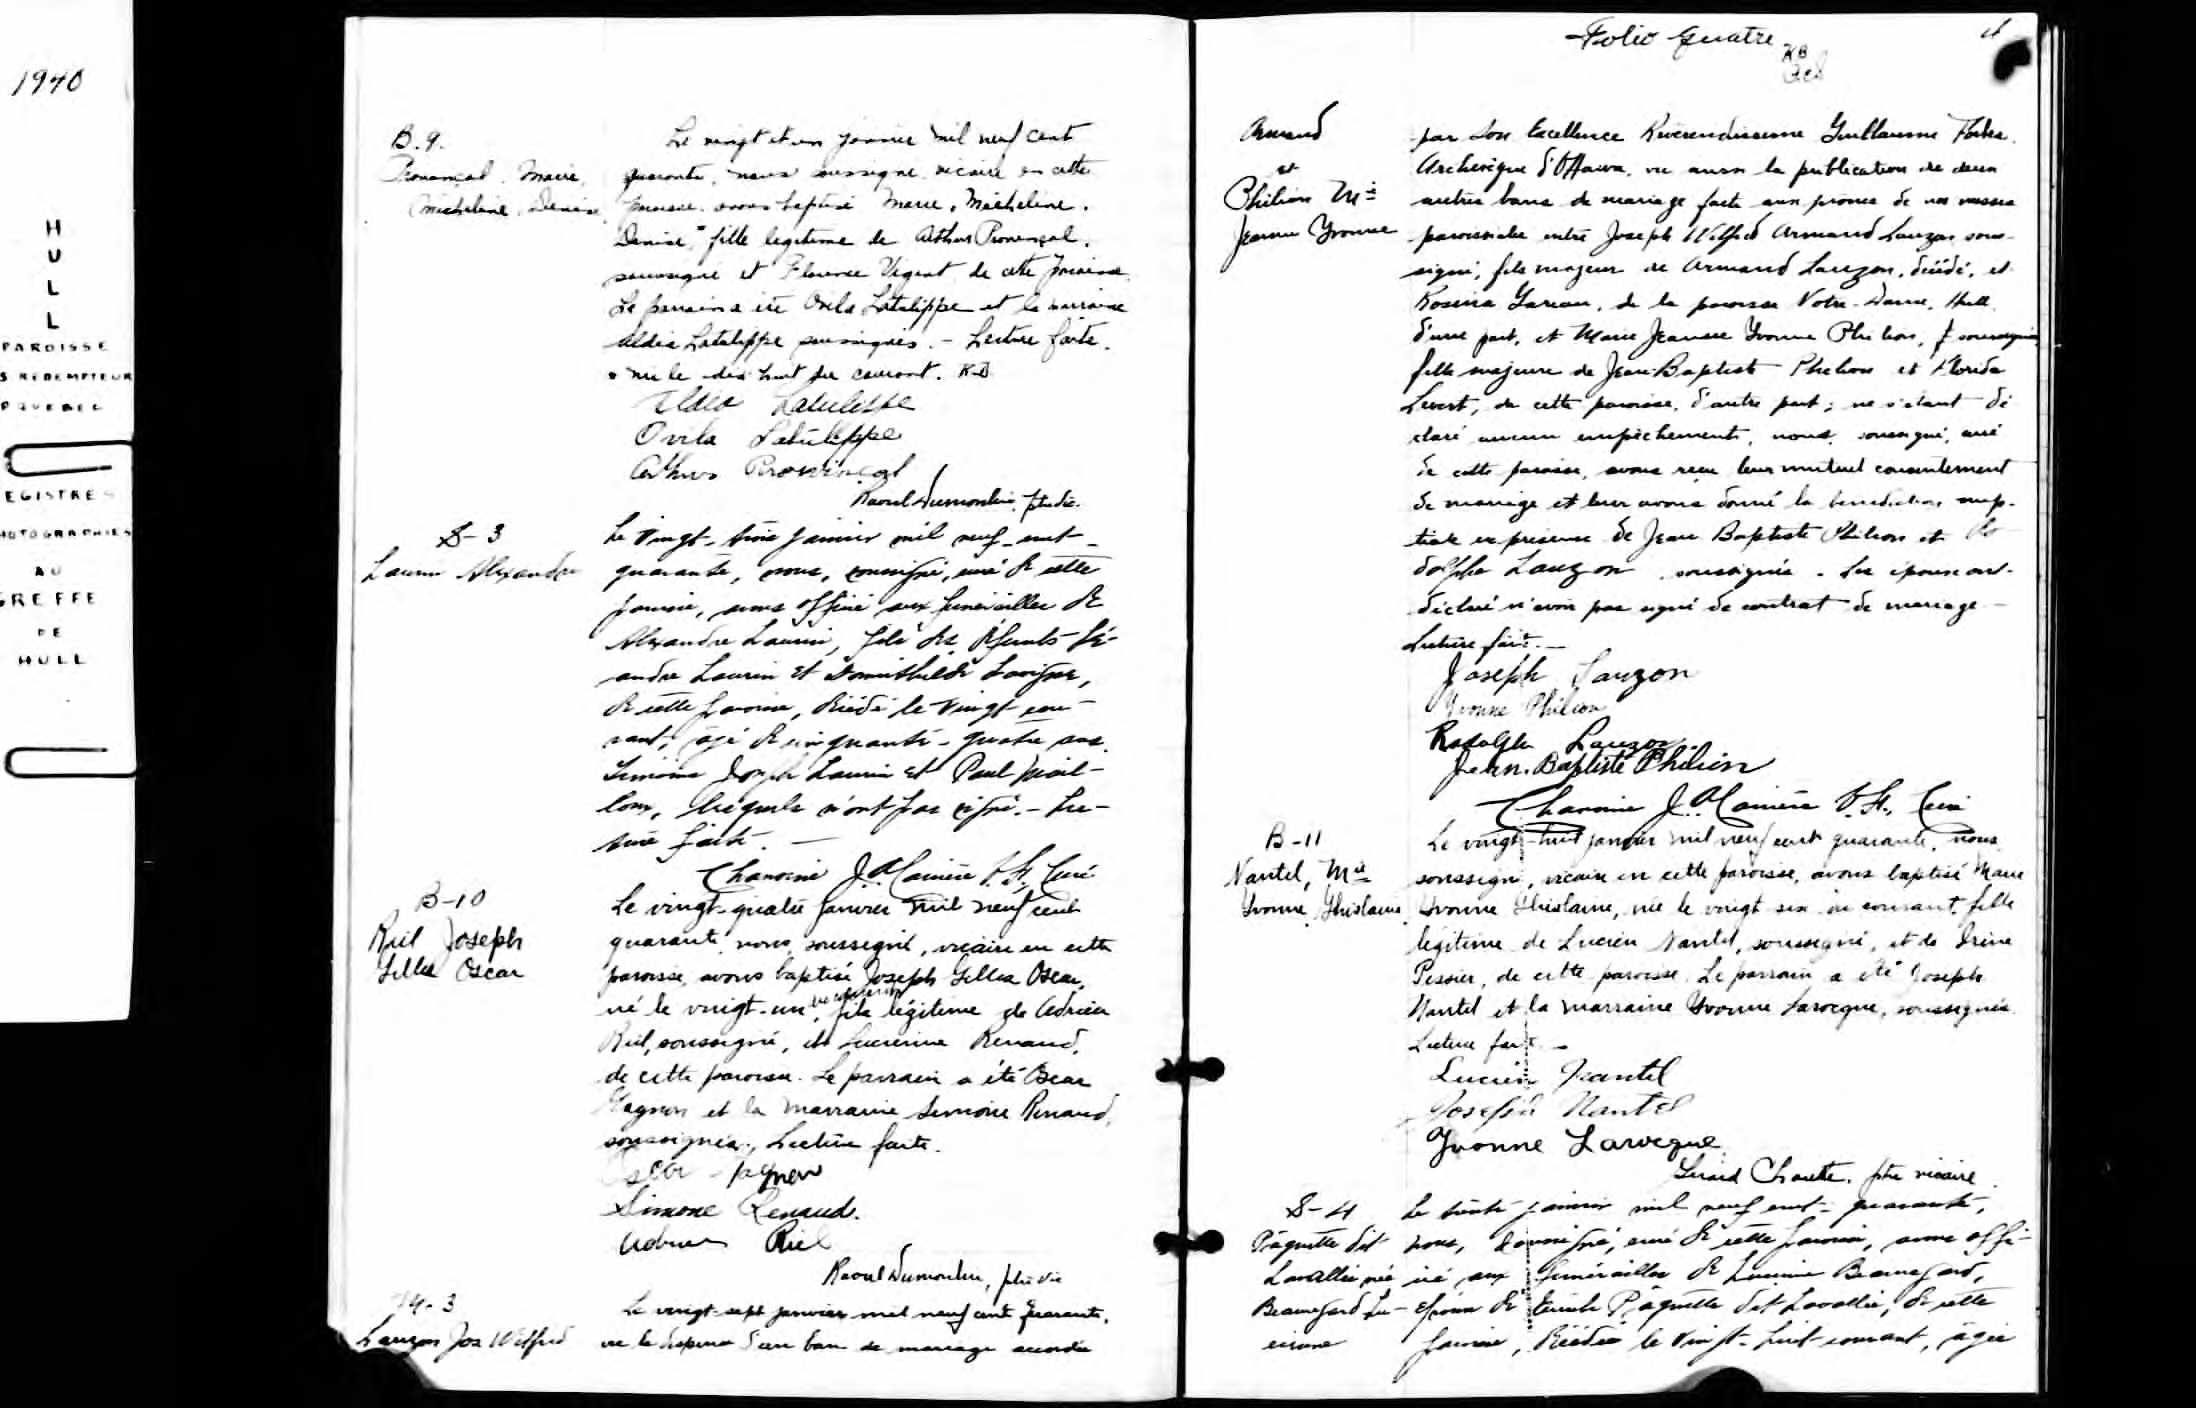 1940
H
U
L
L
PAROISSE
S REDEMPTEUR
QUEBEC
EGISTRES
HOTOGRAPHIES
AU
GREFFE
DE
HULL
B.9.
Provençal, Marie,
Micheline, Denise
Le vingt et un janvier mil neuf cent
quarante, nous soussigné, vicaire en cette
paroisse, avons baptisé Marie, Micheline,
Denise, fille légitime de Arthur Provençal,
soussigné et Florence Vegeat, de cette paroisse.
Le parrain a été Ovila Latulippe et la marraine
Aldéa Latulippe soussignés. - Lecture faite.
née le dix-huit du courant. R.D.
Aldéa Latulippe
Ovila Latulippe
Arthur Provençal
Raoul Dumoulin, ptre vic.
S-3
Laurin Alexandre
Le vingt-trois janvier mil neuf-cent-
quarante, nous, soussigné, curé de cette
paroisse, avons officié aux funérailles de
Alexandre Laurin, fils des défunts Lé-
andre Laurin et Domithilde Lavigne,
de cette paroisse, décédé le vingt cou-
rant, âgé de cinquante-quatre ans.
Témoins Joseph Laurin et Paul
lesquels n'ont pas signé. - Lec-
ture faite. -
Chanoine J.A. Carrière V.F., Curé
B-10
Riel Joseph
Gilles Oscar
Le vingt-quatre janvier mil neuf cent
quarante, nous, soussigné, vicaire en cette
paroisse, avons baptisé Joseph Gilles Oscar,
né le vingt-un du courant, fils légitime de Adrien
Riel, soussigné, et Lucienne Renaud,
de cette paroisse. Le parrain a été Oscar
Gagnon et la marraine Simone Renaud,
soussignés. Lecture faite.
Oscar Gagnon
Simone Renaud.
Adrien Riel
Raoul Dumoulin, ptre vic
M-3
Lauzon Jos Wilfrid
Le vingt-sept janvier mil neuf cent quarante,
vu la dispense d'un ban de mariage accordée
Folio Quatre
4
R.D.
Armand
et
Philion Mie
Jeanne Yvonne
par Son Excellence Révérendissime Guillaume Forbes
Archevêque d'Ottawa, vu aussi la publication de deux
autres bans de mariage faite aux prônes de nos messes
paroissiales entre Joseph Wilfrid Armand Lauzon sous-
signé, fils majeur de Armand Lauzon, décédé, et
Rosina Gareau, de la paroisse Notre-Dame, Hull,
d'une part, et Marie Jeanne Yvonne Philion, soussignée,
fille majeure de Jean-Baptiste Philion et Florida
Levert, de cette paroisse, d'autre part; ne s'étant dé
claré aucun empêchement, nous, soussigné, curé
de cette paroisse, avons reçu leur mutuel consentement
de mariage et leur avons donné la bénédiction nup-
tiale en présence de Jean Baptiste Philion et Ro
dolphe Lauzon soussignés. Les époux ont
déclaré n'avoir pas signé de contrat de mariage -
Lecture faite. -
Joseph Lauzon
Yvonne Philion
Rodolphe Lauzon
Jean-Baptiste Philion
Chanoine J.A. Carrière V.F., Curé
B-11
Nantel, Mie
Yvonne Ghislaine
Le vingt-huit janvier mil neuf cent quarante, nous
soussigné, vicaire en cette paroisse, avons baptisé Marie
Yvonne Ghislaine, née le vingt six du courant, fille
légitime de Lucien Nantel, soussigné, et de Irène
Tessier, de cette paroisse. Le parrain a été Joseph
Nantel et la marraine Yvonne Larocque, soussignés.
Lecture faite. -
Lucien Nantel
Joseph Nantel
Yvonne Larocque
Gérard Chouette, ptre vicaire.
S-4
Pâquette dit
Lavallée née
Beauregard Lu-
cienne
Le trente janvier mil neuf cent-quarante,
nous, soussigné, curé de cette paroisse, avons offi-
cié aux funérailles de Lucienne Beauregard,
épouse de Émile Pâquette dit Lavallée, de cette
paroisse, décédée le vingt-huit courant, âgée